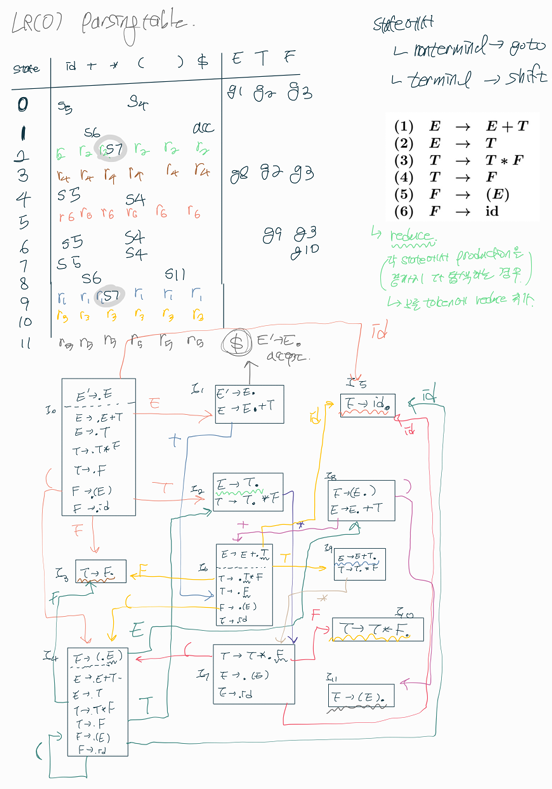 LR(0) Parsing table.
state id + * ( ) $ E T F
0 s5 s4 g1 g2 g3
1 s6 acc
2 r2 r2 r2 s7 r2 r2 r2
3 r4 r4 r4 r4 r4 r4
4 s5 s4 g8 g2 g3
5 r6 r6 r6 r6 r6 r6
6 s5 s4 g9 g3
7 s5 s4 g10
8 s6 s11
9 r1 r1 r1 s7 r1 r1 r1
10 r3 r3 r3 r3 r3 r3
11 r5 r5 r5 r5 r5 r5
state에서
nonterminal → goto
terminal → shift
(1) E → E + T
(2) E → T
(3) T → T * F
(4) T → F
(5) F → (E)
(6) F → id
reduce.
각 state에서 production은
끝까지 다 탐색하는 경우.
모든 token에 reduce
$
E'→E.
accept.
I0
E'→.E
E→.E+T
E→.T
T→.T*F
T→.F
F→.(E)
F→.id
E
T
F
(
id
I1
E'→E.
E→E.+T
+
I5
F→id.
id
id
id
I2
E→T.
T→T.*F
*
I8
F→(E.)
E→E.+T
)
+
I3
T→F.
F
F
I6
E→E+.T
T→.T*F
T→.F
F→.(E)
F→.id
T
(
I9
E→E+T.
T→T.*F
*
I10
T→T*F.
F
I4
F→(.E)
E→.E+T
E→.T
T→.T*F
T→.F
F→.(E)
F→.id
E
T
(
I7
T→T*.F
F→.(E)
F→.id
(
I11
F→(E).